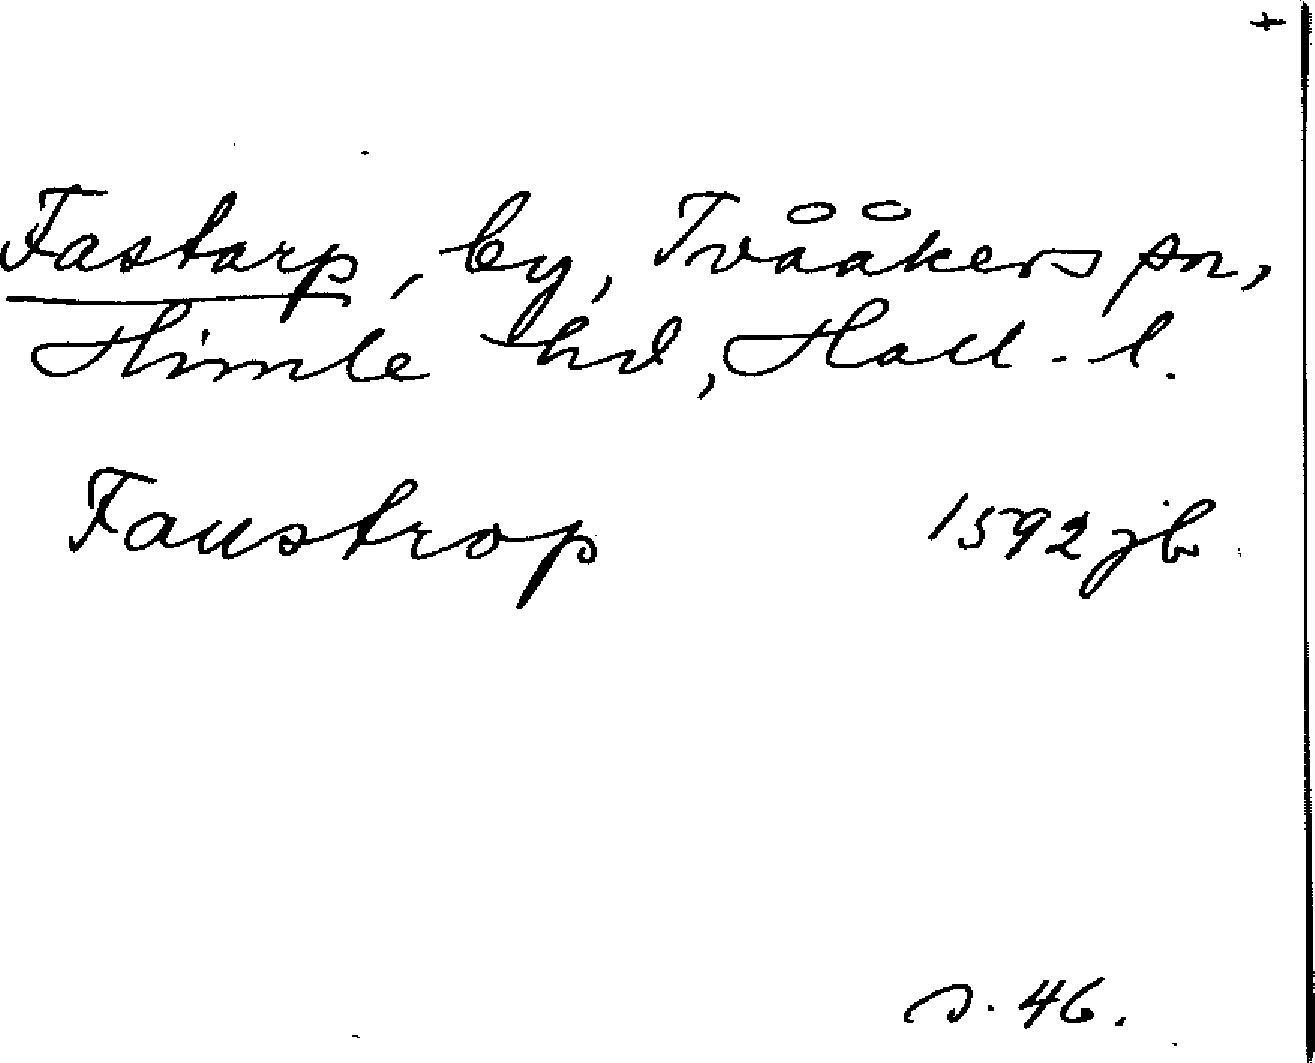 +
Fastarp, by, Tvååkers sn,
Himle hd, Hall. l.
Faustrop 1592 jb.
s. 46.